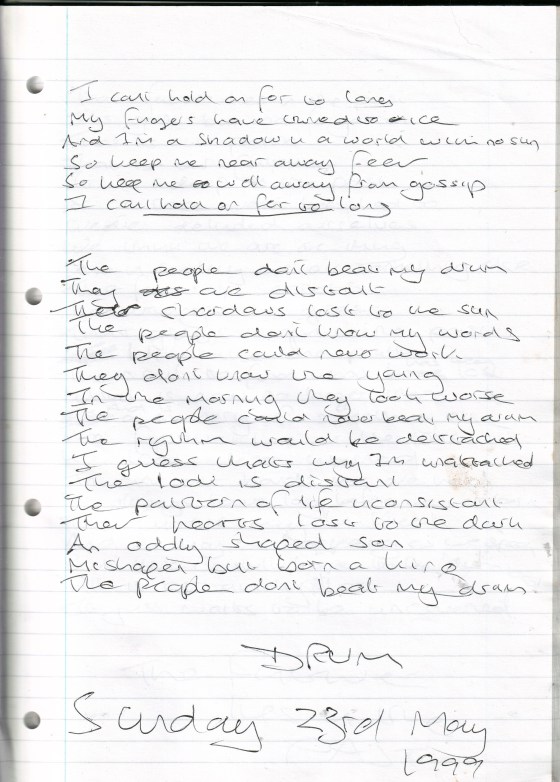 I cant hold on for to long
My fingers have turned to ice
And I'm a shadow in a world with no sun
So keep me near away fear
So keep me well away from gossip
I cant hold on for to long
The people dont beat my drum
They are distant
shardows lost to the sun
The people dont know my words
The people could never work
They dont know the young
In the morning they look worse
The people could never beat my drum
The rythm would be detatched
I guess thats why I'm
The look is distant
The pattern of life inconsistant
Their hearts lost to the dark
An oddly shaped son
Mishapen but born a king
The people dont beat my drum.
DRUM
Sunday 23rd May
1999